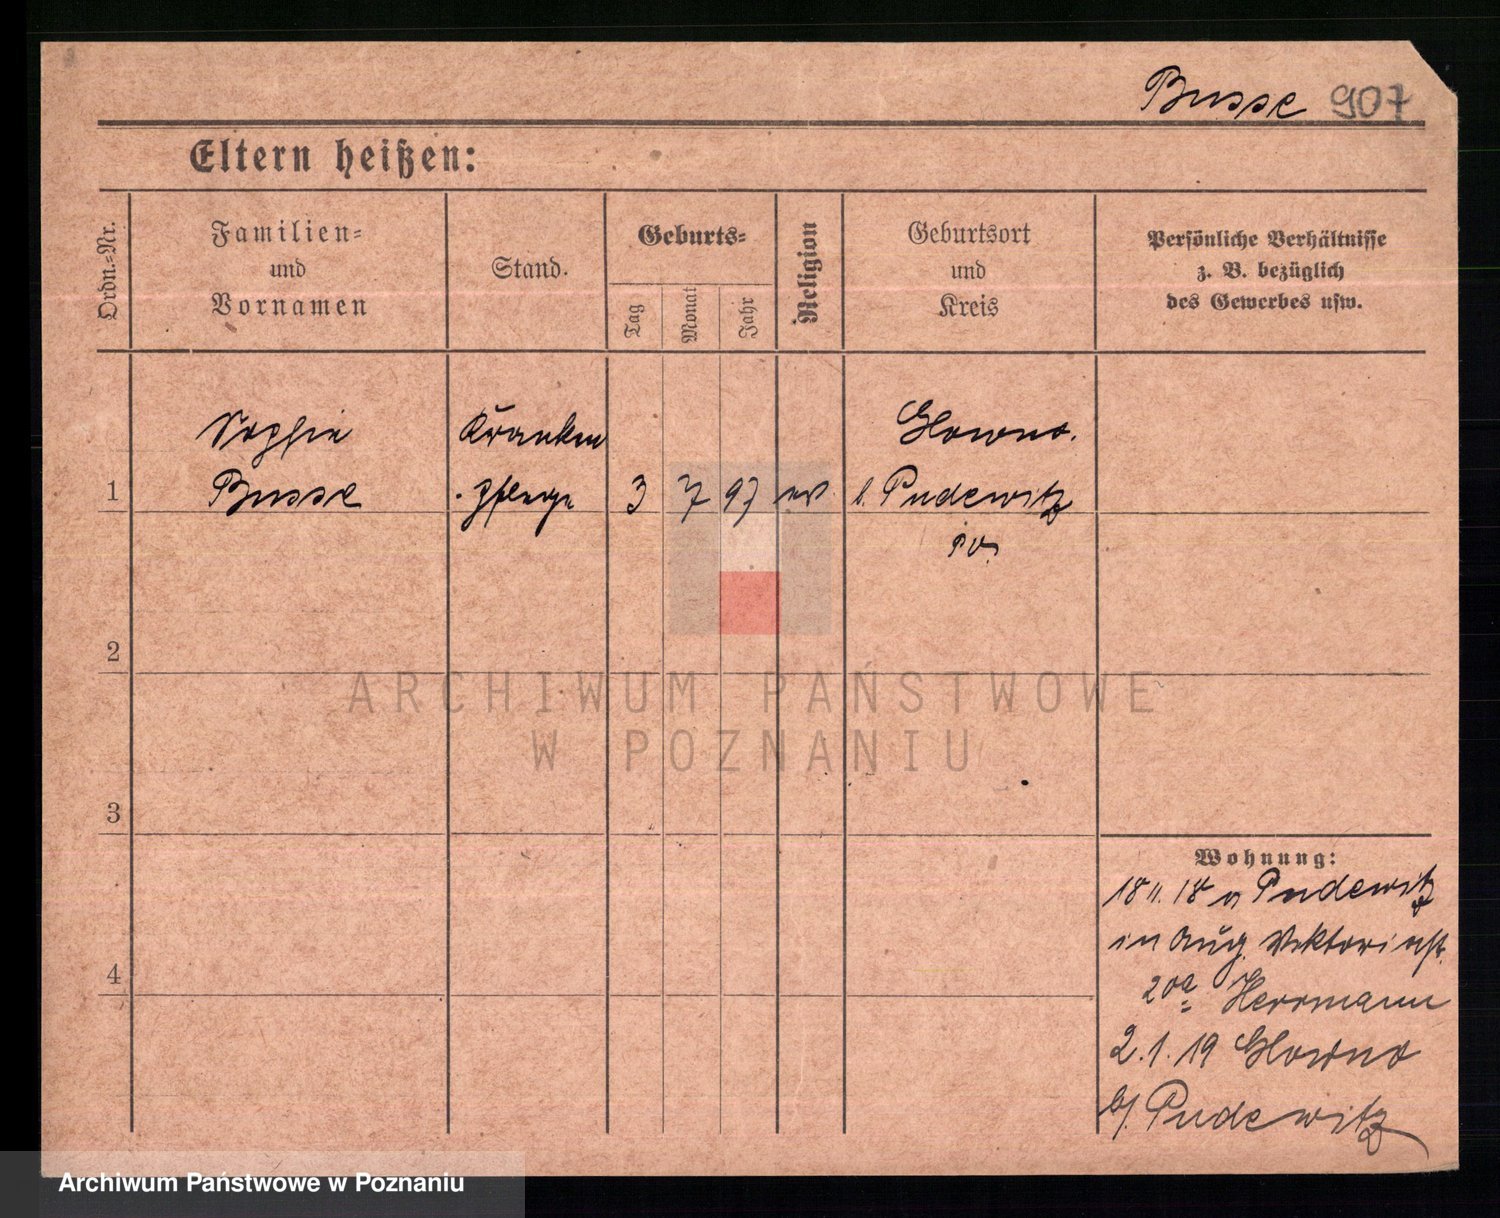 Busse 907
Eltern heißen:
Ordn.-Nr.
Familien-
und
Vornamen
Stand.
Geburts-
Tag
Monat
Jahr
Religion
Geburtsort
und
Kreis
Persönliche Verhältnisse
z. B. bezüglich
des Gewerbes usw.
Sophie Kranken Glowno.
1 Busse pflege 3 7 97 ev. b. Pudewitz
2
3
4
Wohnung:
18 11. 18 Pudewitz
in Aug. Viktoriastr.
20a Herrmann
2.1.19 Glowno
b/. Pudewitz
ARCHIWUM PAŃSTWOWE
W POZNANIU
Archiwum Państwowe w Poznaniu